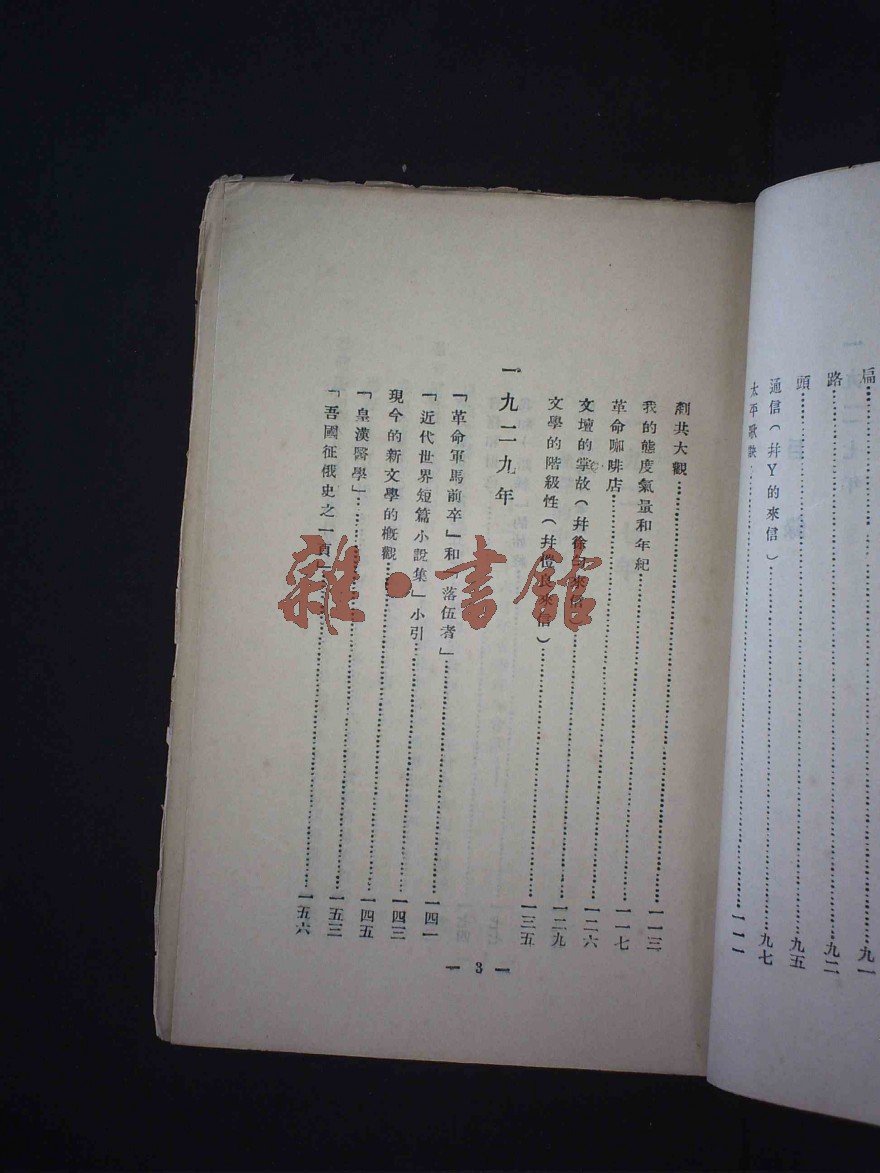 扁……九一
路……九二
頭……九五
通信（幷Y的來信）……九七
太平歌訣……一一一
剷共大觀……一一三
我的態度氣量和年紀……一一七
革命咖啡店……一二六
文壇的掌故（幷徐勻來信）……一二九
文學的階級性（幷愷良來信）……一三五
一九二九年
「革命軍馬前卒」和「落伍者」……一四一
「近代世界短篇小說集」小引……一四三
現今的新文學的槪觀……一四五
「皇漢醫學」……一五三
「吾國征俄史之一頁」……一五六
— 3 —
雜·書館